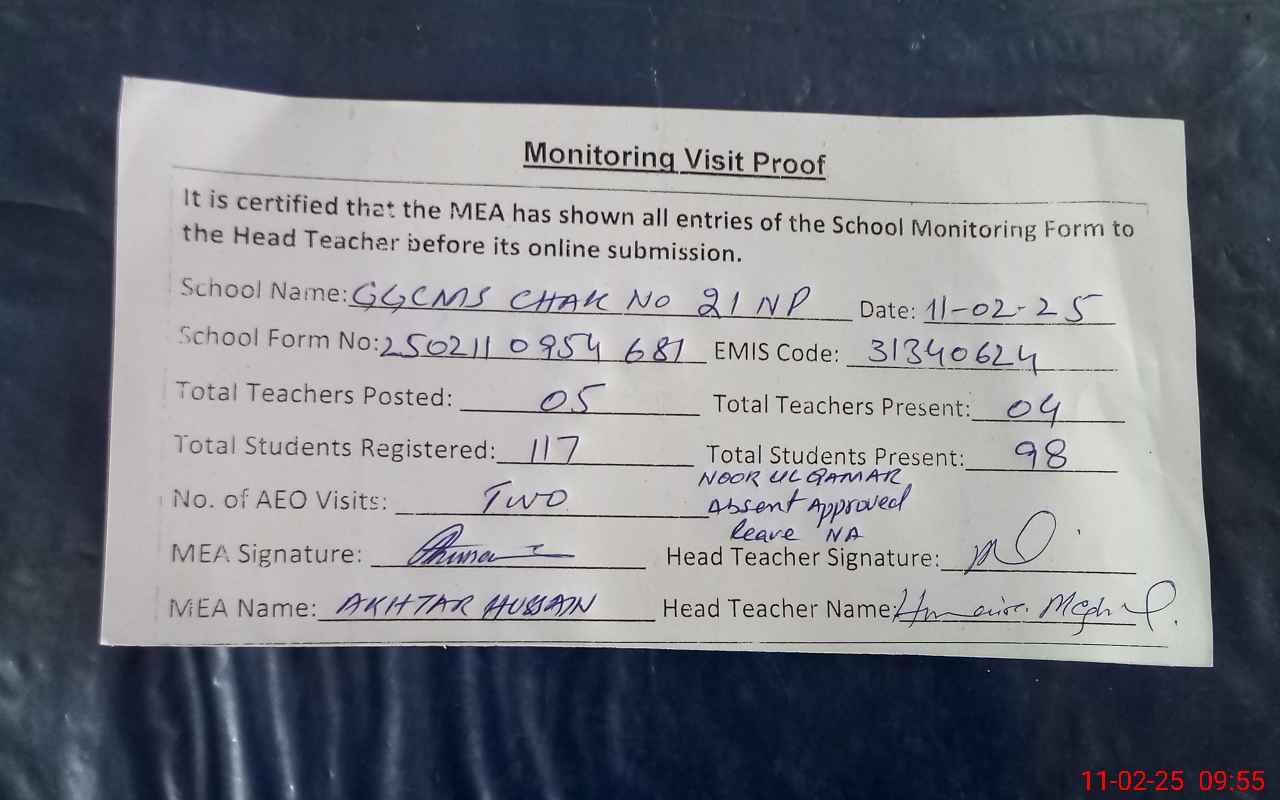 Monitoring Visit Proof
It is certified that the MEA has shown all entries of the School Monitoring Form to
the Head Teacher before its online submission.
School Name: GGCMS CHAK NO 21 NP Date: 11-02-25
School Form No: 2502110954681 EMIS Code: 31340624
Total Teachers Posted: 05 Total Teachers Present: 04
Total Students Registered: 117 Total Students Present: 98
NOOR UL QAMAR
No. of AEO Visits: TWO Absent Approved
leave NA
MEA Signature: Head Teacher Signature:
MEA Name: AKHTAR HUSSAIN Head Teacher Name: Humaira
11-02-25 09:55